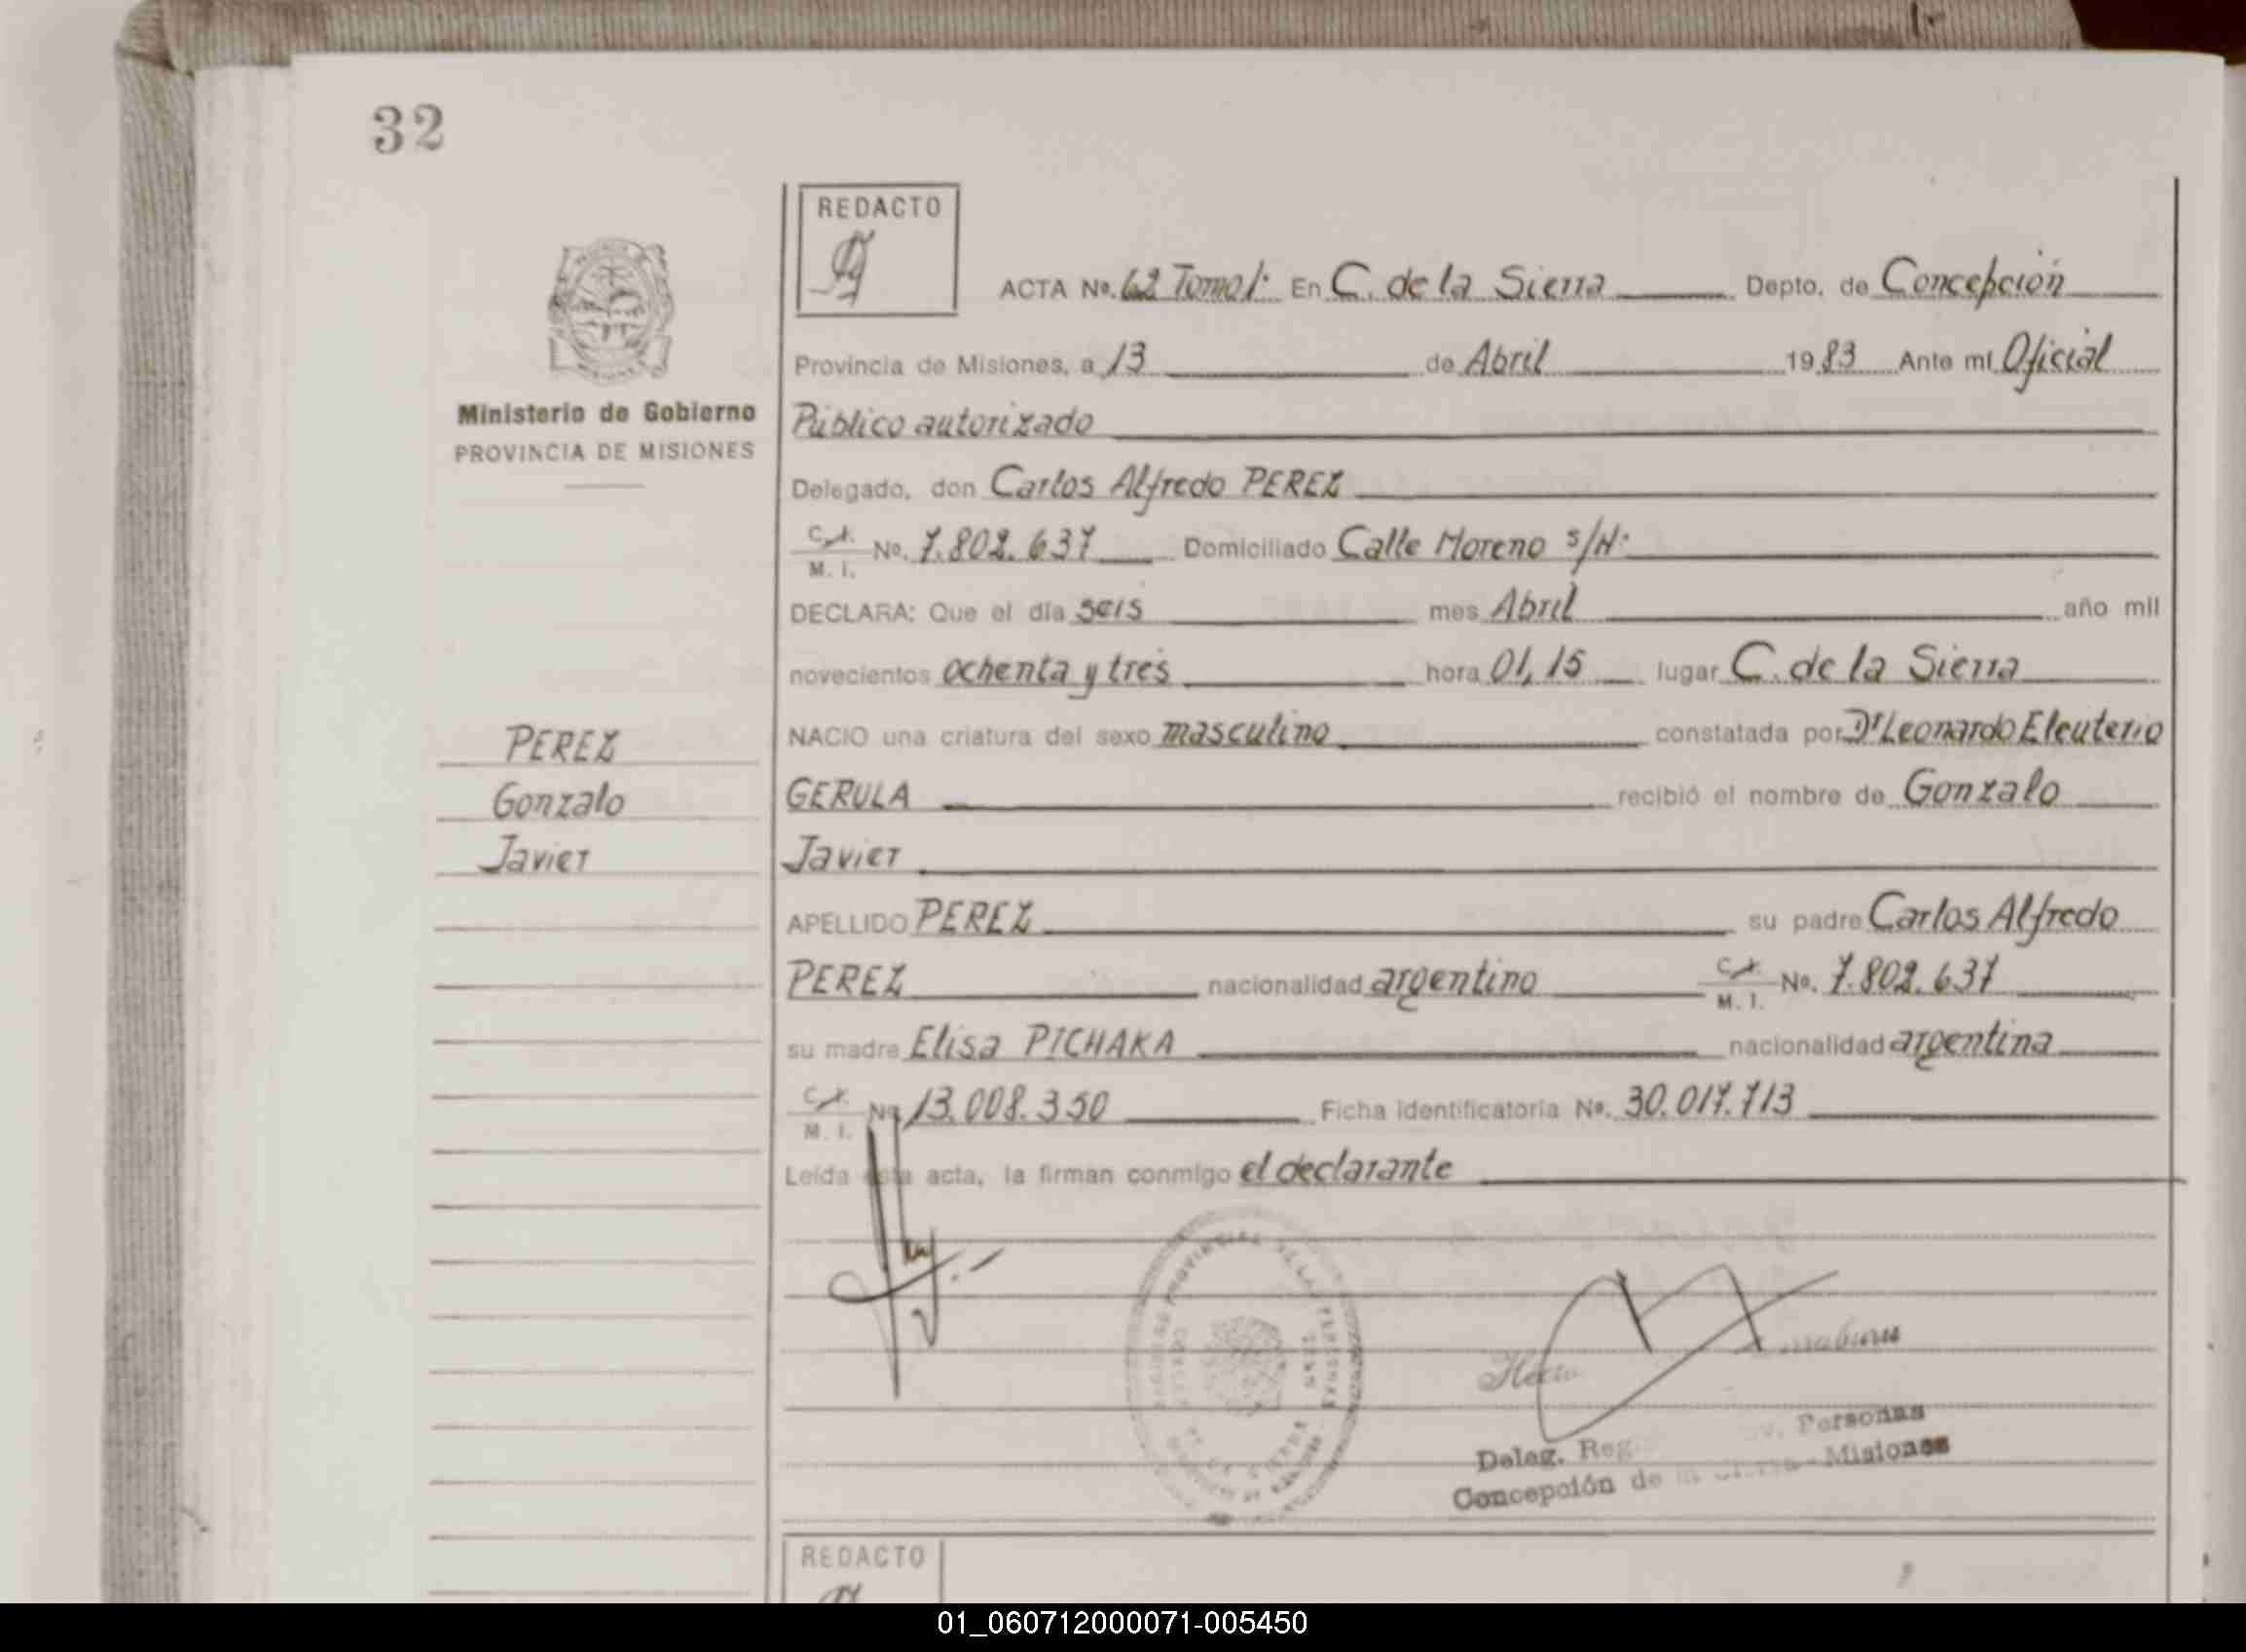 32
REDACTO
ACTA No. 62 Tomo I. En C. de la Sierra Depto. de Concepción
Provincia de Misiones, a 13 de Abril 1983 Ante mí Oficial
Ministerio de Gobierno
Público autorizado
PROVINCIA DE MISIONES
Delegado, don Carlos Alfredo PEREZ
C. I. No. 7.802.637 Domiciliado Calle Moreno s/N.
M. I.
DECLARA: Que el día seis mes Abril año mil
novecientos ochenta y tres hora 01,15 lugar C. de la Sierra
PEREZ
NACIO una criatura del sexo masculino constatada por Dr Leonardo Eleuterio
Gonzalo
GERULA recibió el nombre de Gonzalo
Javier
Javier
APELLIDO PEREZ su padre Carlos Alfredo
PEREZ nacionalidad argentino C. I. No. 7.802.637
M. I.
su madre Elisa PICHAKA nacionalidad argentina
C. I. No 13.008.350 Ficha identificatoria No. 30.017.713
M. I.
Leída esta acta, la firman conmigo el declarante
Deleg. Reg. Personas
Concepción de la Sierra - Misiones
REDACTO
01_060712000071-005450